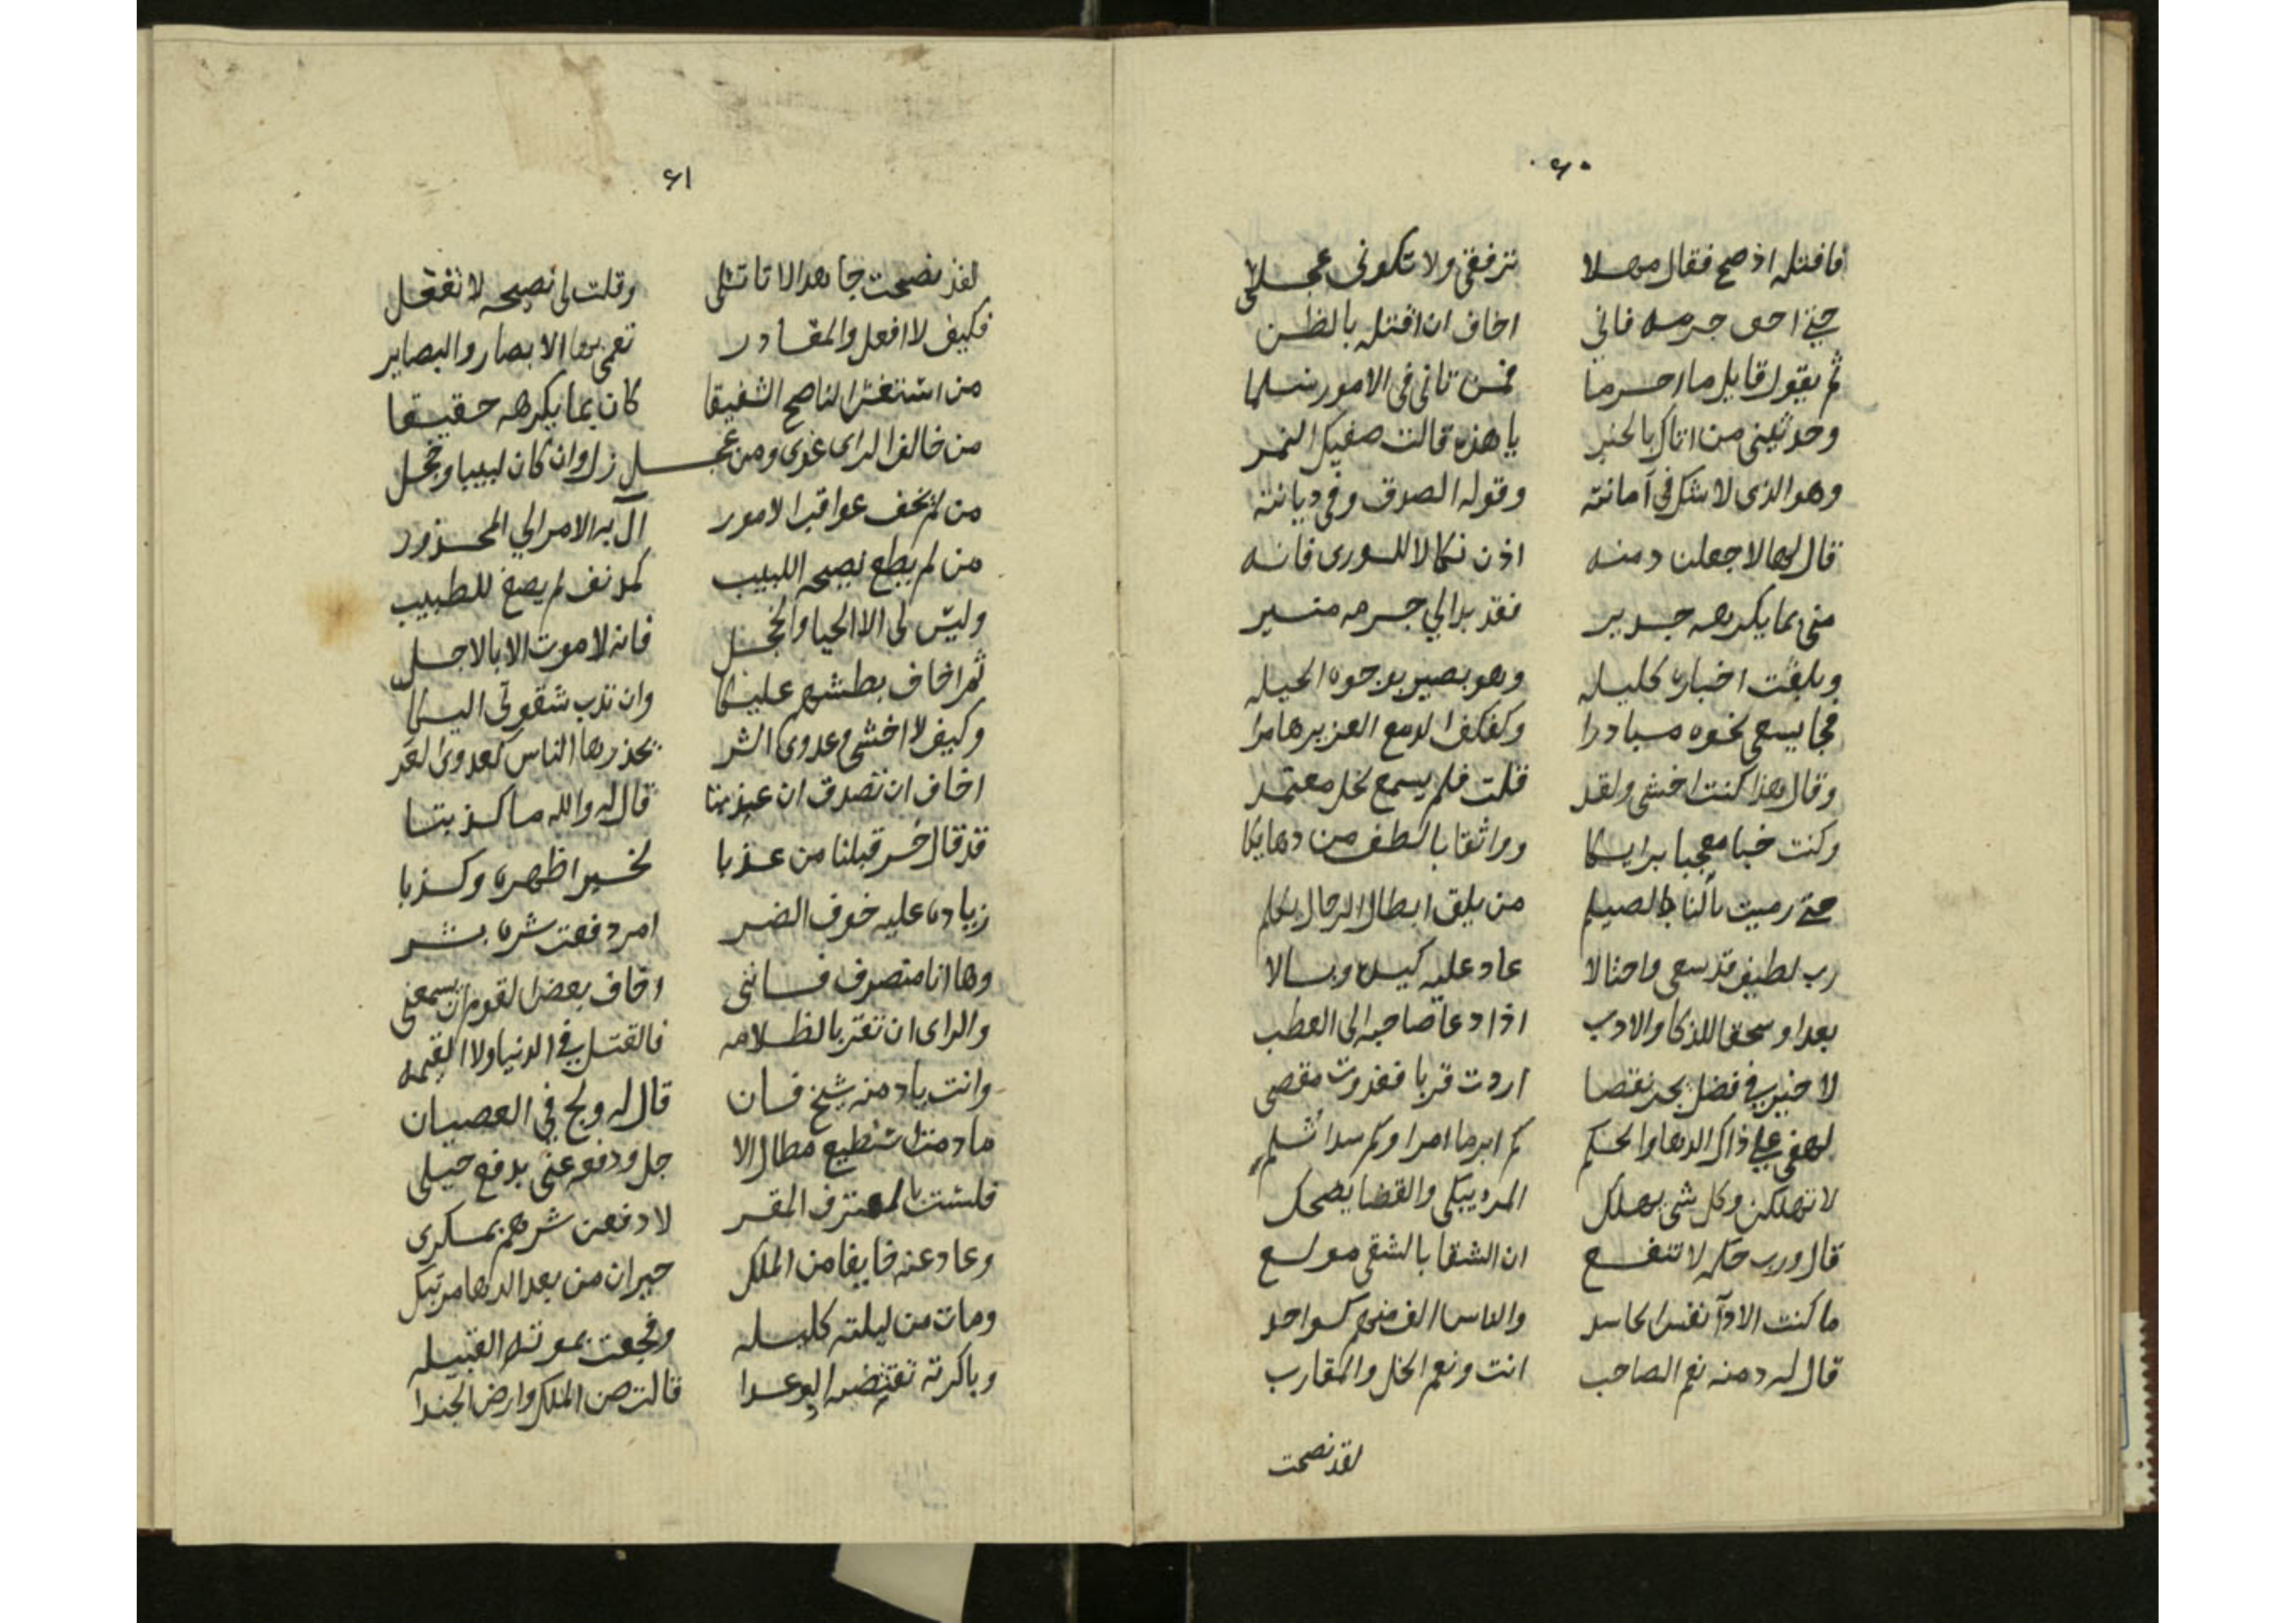 ٦٠
فاقتله اذ صح فقال مهلا ترفقى ولا تكونى عجلا
حتى احق جرمه فانى اخاف ان اقتله بالظن
ثم يقول قايل ما احرما فمن تانى فى الامور سلما
وحدثينى من اتاك بالخبر يا هذه قالت صفيك النمر
وهو الذى لا شك فى امانته وقوله الصدق وفى ديانته
قال لها لاجعلن دمنه اذن نكالا للورى فانه
منى بما يكرهه جدير فقد بدا لي جرمه منير
وبلغت اخباره كليله وهو بصير بوجوه الحيله
فجا يسعى نحوه مبادرا وكفكف الدمع العزيز هامرا
وقال هذا كنت اخشى ولقد قلت فلم يسمع لخل معتمد
وكنت خبا معجبا برايكا وواثقا باللطف من دهايكا
حتى رميت بالناب الصيلم من يلق ابطال الرجال يكلم
رب لطيف قد سعى واحتالا عاد عليه كيده وبالا
بعدا وسحقا للذكا والادب اذا دعا صاحبه الى العطب
لا خير فى فضل يجر نقصا اردت قربا فغدوت مقصى
لهفى على ذاك الدها والحكم كم ابرما امرا وكم سدا ثلم
لا تهلكن وكل شى يهلك المرء يبكى والقضا يضحك
قال ورب حكمه لا تنفع ان الشقا بالشقى مولع
ما كنت الا دآ نفس الحاسد والناس الف منهم كواحد
قال له دمنه نعم الصاحب انت ونعم الخل والمقارب
لقد نصحت
٦١
لقد نصحت جاهدا لا تاتلى وقلت لى نصيحه لا تفعل
فكيف لا افعل والمقادر تعمى بها الابصار والبصاير
من استغش الناصح الشفيقا كان بما يكرهه حقيقا
من خالف الراى غوى ومن عجل زل وان كان لبيبا وخجل
من لم يخف عواقب الامور آل به الامر الي المحذور
من لم يطع نصيحه اللبيب كمدنف لم يصغ للطبيب
وليس لى الا الحيا والخجل فانه لا موت الا بالاجل
ثم اخاف بطشهم عليكا وان تدب شقوتى اليكا
وكيف لا اخشى وعدوى الشر يحذرها الناس كعدوى العر
اخاف ان تصدق ان عذبتا قال له والله ما كذبتا
قد قال خسر قبلنا من عذبا لخسير اظهره وكذبا
زياده عليه خوف الضر امر دفعت شره بشر
وها انا منصرف فاننى اخاف بعض القوم ان يسمعنى
والراى ان تقر بالظلامه فالقتل فى الدنيا ولا القيمه
وانت ياد منه شيخ فان قال له ولج في العصيان
ما دمت استطيع مطال الا جل ودفعه عنى بدفع حيلى
فلست بالمعترف المقر لادفعن شرهم بمكرى
وعاد عنه خايفا من الملك حيران من بعد الدها مرتبك
ومات من ليلته كليله وفجعت بموته القبيله
وباكرته تقتضيه الوعدا قالت صن الملك وارض الجندا